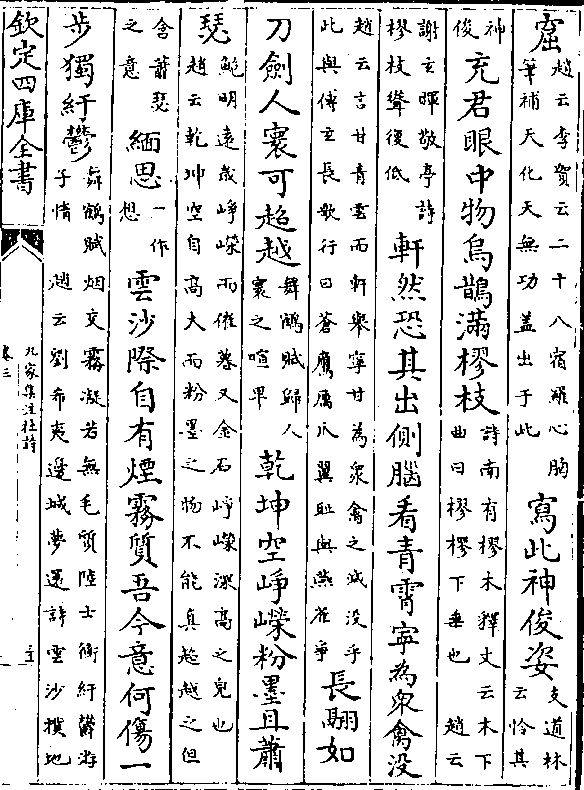 窟趙云李賀云二十八宿羅心胸
筆補天化天無功蓋出于此
寫此神俊姿支道林
云怜其
神
俊
充君眼中物烏鵲滿樛枝詩南有樛木釋文云木下
曲曰樛樛下垂也 趙云
謝玄暉敬亭詩
樛枝聳復低
軒然恐其出側腦看青霄寧為衆禽没
趙云言甘青雲而軒舉寧甘為衆禽之滅没乎
此與傅玄長歌行曰蒼鷹厲爪翼恥與燕雀爭
長翮如
刀劍人寰可超越舞鶴賦歸人
寰之喧卑
乾坤空崢嶸粉墨且蕭
瑟鮑明遠歲崢嶸而催暮又金石崢嶸深高之皃也
趙云乾坤空自高大而粉墨之物不能真超越之但
含蕭瑟
之意
緬思一作
想
雲沙際自有煙霧質吾今意何傷一
步獨紆鬱舞鶴賦烟交霧凝若無毛質陸士衡紆鬱游
子情 趙云劉希夷邊城夢還詩雲沙撲地
欽定四庫全書
九家集注杜詩
卷三